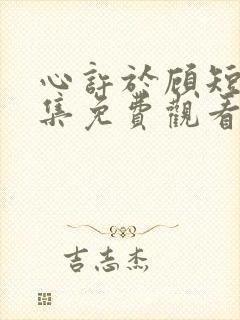 心許於顧短
集免費觀看
吉志杰